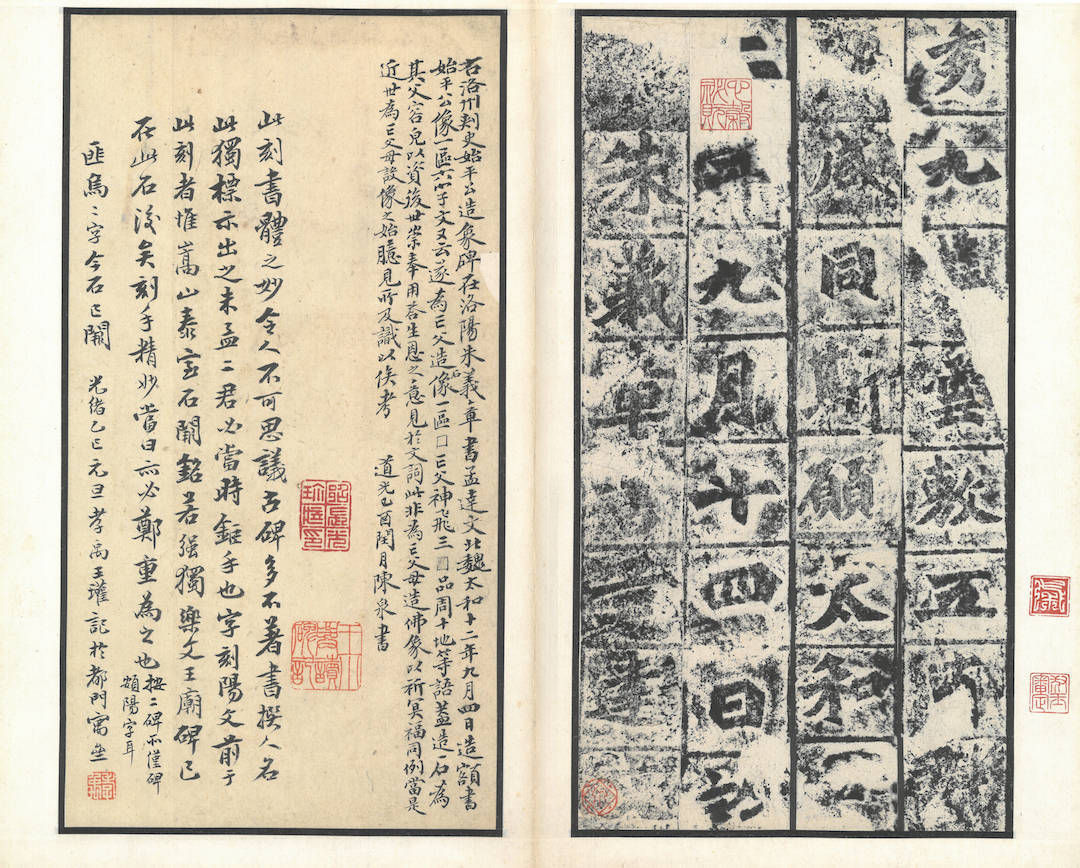 秀九雲敷五
咸同斯願太和
二年九月十四日訖
朱義章
右洛州刺史始平公造象碑在洛陽朱義章書孟達文北魏太和十二年九月四日造額書
始平公像一區六小字文又云遂為亡父造石像一區□亡父神飛三□品周十地等語蓋造一石為
其父容皃以資後世崇奉用荅生恩之意見於文詞此非為亡父母造佛像以祈冥福同例當是
近世為亡父母設像之始臆見所及識以俟考 道光己酉閏月陳泉書
此刻書體之妙令人不可思議古碑多不著書撰人名
此獨標示出之朱孟二君必當時鉅手也字刻陽文前于
此刻者惟嵩山泰室石闕銘若強獨樂文王廟碑已
在此石後矣刻手精妙當日亦必鄭重為之也 按二碑不僅碑
額陽字耳
匪烏二字今石已闕 光緒乙巳元旦孝禹王瓘記於都門寓